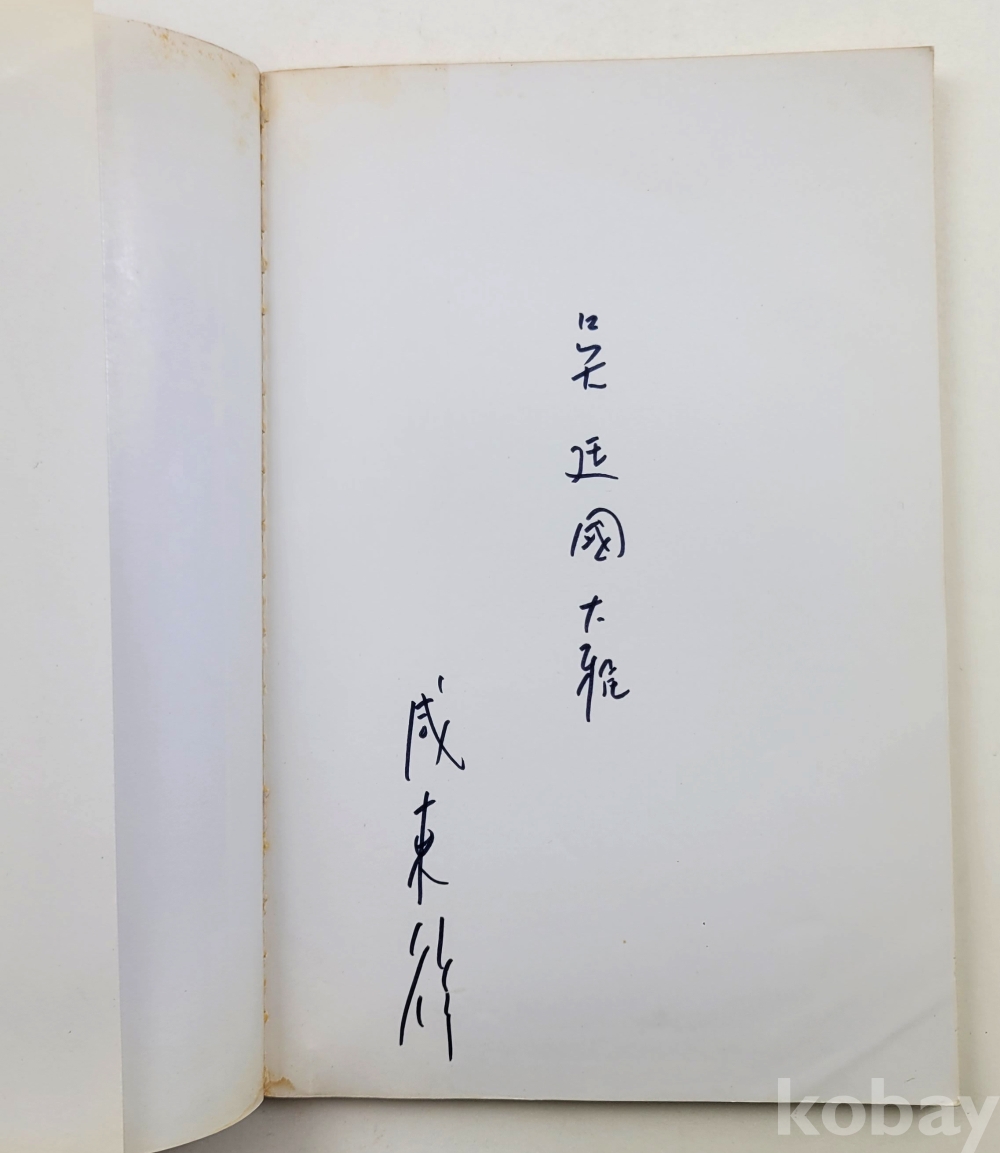 吳廷國大雅
咸東鮮
kobay